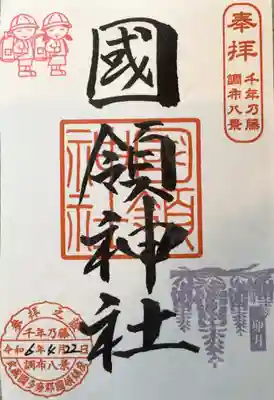 奉拝
千年乃藤
調布八景
國領神社
國領神社
卯月
奉拝之証
千年乃藤
令和6年4月22日
調布八景
武蔵國多摩郡國領鎮座